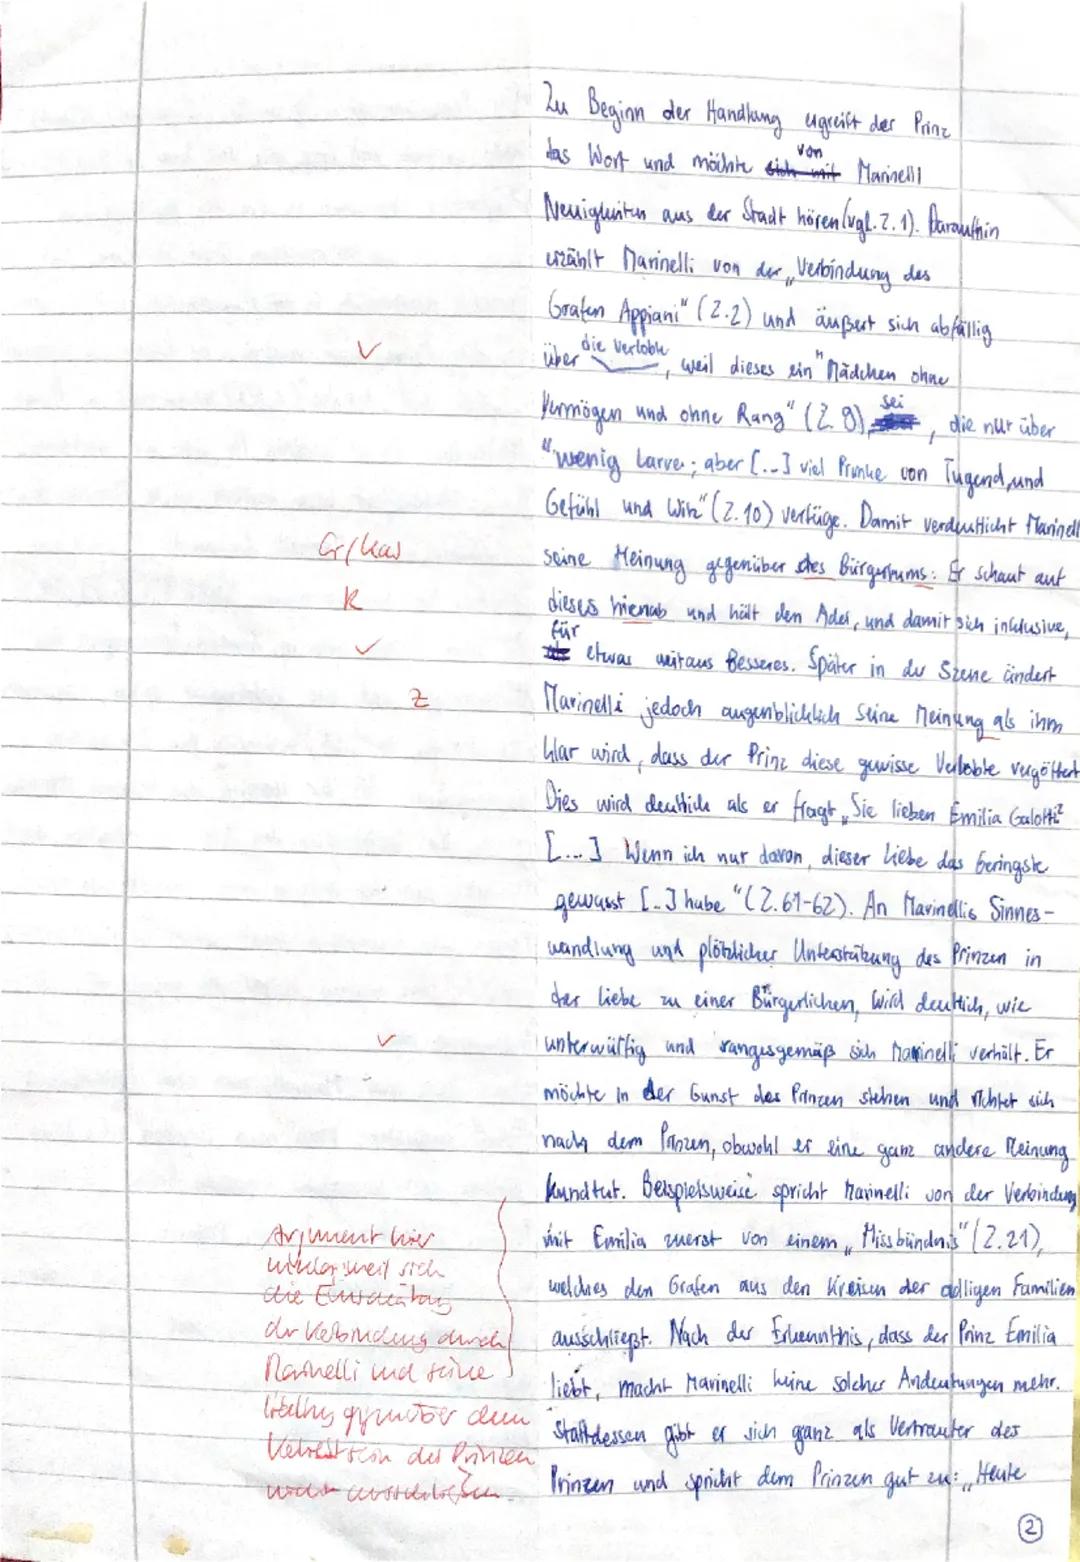 Zu Beginn der Handlung ergreift der Prinz
das Wort und möchte sich mit von Marinelli
Neuigkeiten aus der Stadt hören (vgl. Z. 1). Daraufhin
erzählt Marinelli von der „Verbindung des
Grafen Appiani" (Z.2) und äußert sich abfällig
über die Verlobte, weil dieses ein "Mädchen ohne
Vermögen und ohne Rang" (Z. 9) sei, die nur über
"wenig Larve; aber [...] viel Prunke von Tugend und
Gefühl und Witz" (Z.10) verfüge. Damit verdeutlicht Marinelli
Gr/Kas
seine Meinung gegenüber des Bürgertums: Er schaut auf
R
dieses hienab und hält den Adel, und damit sich inklusive,
für etwas weitaus Besseres. Später in der Szene ändert
Z
Marinelli jedoch augenblicklich seine Meinung als ihm
klar wird, dass der Prinz diese gewisse Verlobte vergöttert
Dies wird deutlich als er fragt „Sie lieben Emilia Galotti?
[...] Wenn ich nur davon, dieser Liebe das Geringste
gewusst [..] habe" (Z.61-62). An Marinellis Sinnes-
wandlung und plötzlicher Unterstützung des Prinzen in
der Liebe zu einer Bürgerlichen, wird deutlich, wie
unterwürfig und rangesgemäß sich Marinelli verhält. Er
möchte in der Gunst des Prinzen stehen und richtet sich
nach dem Prinzen, obwohl er eine ganz andere Meinung
kundtut. Beispielsweise spricht Marinelli von der Verbindung
mit Emilia zuerst von einem „Missbündnis" (Z.21),
welches den Grafen aus den Kreisen der adligen Familien
ausschließt. Nach der Erkenntnis, dass der Prinz Emilia
liebt, macht Marinelli keine solcher Andeutungen mehr.
Stattdessen gibt er sich ganz als Vertrauter des
Prinzen und spricht dem Prinzen gut zu: „Heute
Argument hier
weil sich
die
der Verbindung durch
Marinelli und seine
Haltung gegenüber dem
Verliebtsein des Prinzen
nicht ausschließen.
2